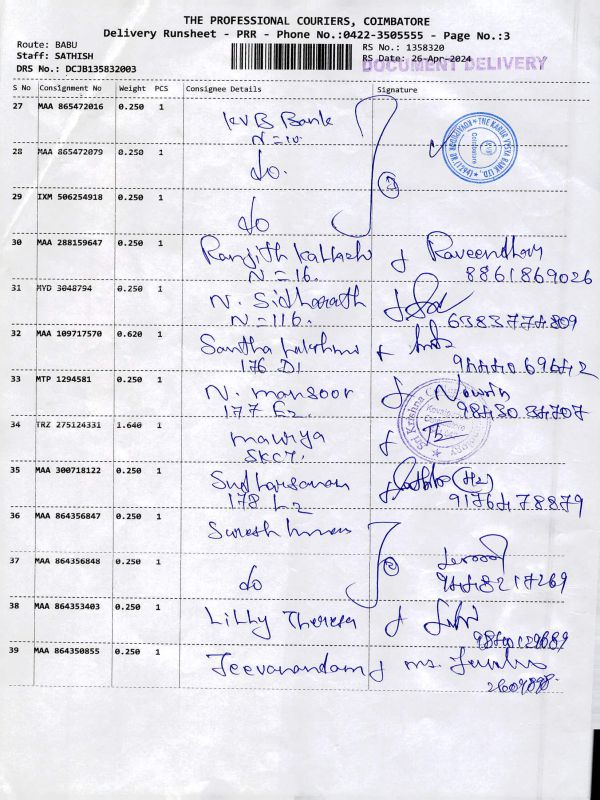 THE PROFESSIONAL COURIERS, COIMBATORE
Delivery Runsheet - PRR - Phone No.:0422-3505555 - Page No.:3
Route: BABU
Staff: SATHISH
DRS No.: DCJB135832003
RS No.: 1358320
RS Date: 26-Apr-2024
DOCUMENT DELIVERY
S No Consignment No Weight PCS Consignee Details Signature
27 MAA 865472016 0.250 1 KVB Bank
N=10.
28 MAA 865472079 0.250 1 do.
29 IXM 506254918 0.250 1 do
30 MAA 288159647 0.250 1 Ranjith Raveendhan
N=16. 8861869026
31 MYD 3048794 0.250 1 N. Sidharath
N=116. 6383774809
32 MAA 109717570 0.620 1 Santha
176 D1
33 MTP 1294581 0.250 1 N. mansoor
177 E2 9843034707
34 TRZ 275124331 1.640 1
SKCT.
35 MAA 300718122 0.250 1 Sudharsanan (H2)
178 9176478879
36 MAA 864356847 0.250 1 Suresh
37 MAA 864356848 0.250 1 do
9448217269
38 MAA 864353403 0.250 1 Lilly Theresa
39 MAA 864350855 0.250 1 Jeevanandam ms.